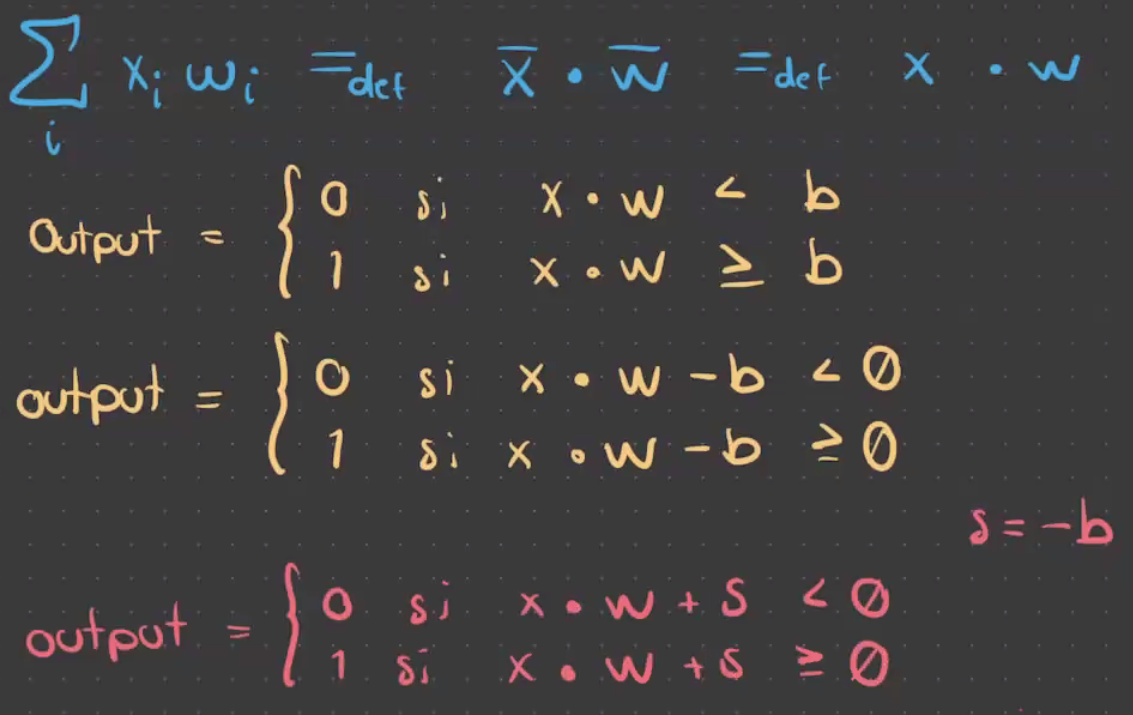 ∑ᵢ xᵢ wᵢ =def x̄ • w̄ =def x • w
Output = { 0 si x • w < b
1 si x • w ≥ b
output = { 0 si x • w - b < 0
1 si x • w - b ≥ 0
s = -b
output = { 0 si x • w + s < 0
1 si x • w + s ≥ 0